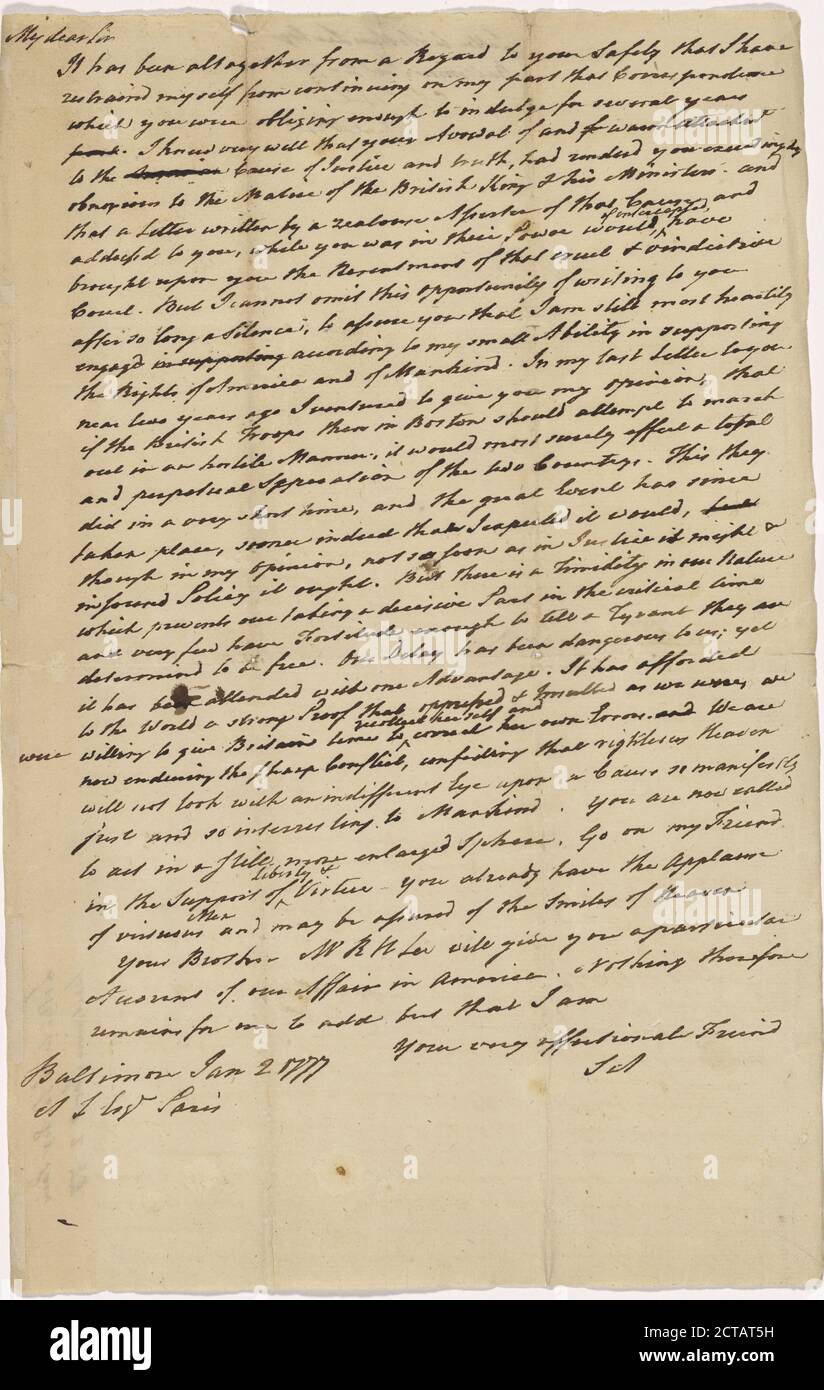 My dear Sir
It has been altogether from a Regard to your Safety that I have
restraind myself from continuing on my part that Correspondence
which you were obliging enough to indulge for several years
I knew very well that your Avowal of and warm attachmt
to the Cause of Justice and truth, had renderd you exceedingly
obnoxious to the Malice of the British King & his Ministers and
that a Letter written by a zealous Asserter of that Cause and
addressd to you, while you was in their Power would, if intercepted, have
brought upon you the Resentment of that cruel & vindictive
Court. But I cannot omit this opportunity of writing to you
after so long a Silence, to assure you that I am still most heartily
engagd in supporting according to my small Ability in supporting
the Rights of America and of Mankind. In my last Letter to you
near two years ago I ventured to give you my opinion, that
if the British Troops then in Boston should attempt to march
out in an hostile Manner, it would most surely effect a total
and perpetual Seperation of the two Countrys. This they
did in a very short time, and the great Event has since
taken place, sooner indeed than I expected it would,
though in my opinion, not so soon as in Justice it might &
in sound Policy it ought. But there is a Timidity in our Nature
which prevents our taking a decisive Part in the critical time
and very few have Fortitude enough to tell a Tyrant they are
determind to be free. Our Delay has been dangerous to us, yet
it has been attended with one Advantage. It has afforded
to the World a strong Proof that oppressed & insulted as we were, we
were willing to give Britain time to recollect herself and correct her own Errors. and We are
now enduring the sharp Conflict, confiding that righteous Heaven
will not look with an indifferent Eye upon a Cause so manifestly
just and so interresting to Mankind. You are now called
to act in a still more enlarged Sphere. Go on my Friend
in the Support of Liberty & Virtue - You already have the Applause
of virtuous Men and may be assured of the Smiles of Heaven
Your Brother Mr R H Lee will give you a particular
Account of our Affairs in America. Nothing therefore
remains for me to add but that I am
Your very affectionate Friend
S A
Baltimore Jan 2 1777
A L Esqr Paris
alamy
alamy
Image ID: 2CTAT5H
www.alamy.com